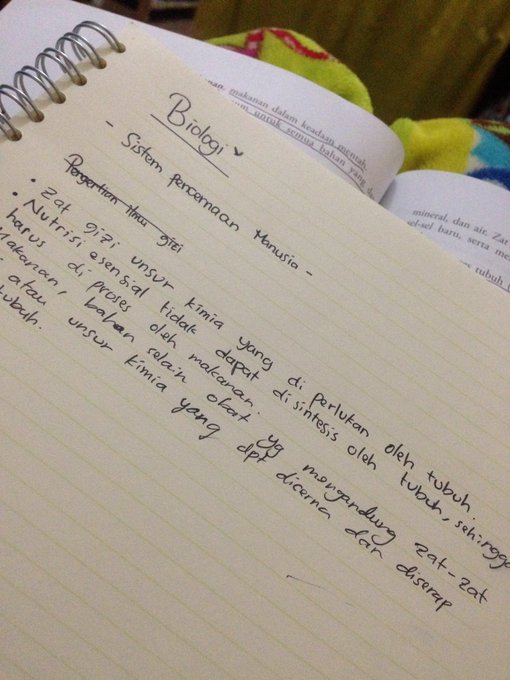 Biologi
- Sistem pencernaan Manusia -
Pengertian Ilmu gizi
• Zat gizi unsur kimia yang di perlukan oleh tubuh.
• Nutrisi esensial tidak dapat disintesis oleh tubuh, sehingga
harus di proses oleh makanan.
Makanan, bahan selain obat yg mengandung zat-zat
atau unsur kimia yang dpt dicerna dan diserap
tubuh.
makanan dalam keadaan mentah.
untuk semua bahan yang
mineral, dan air. Zat
sel-sel baru, serta
tubuh